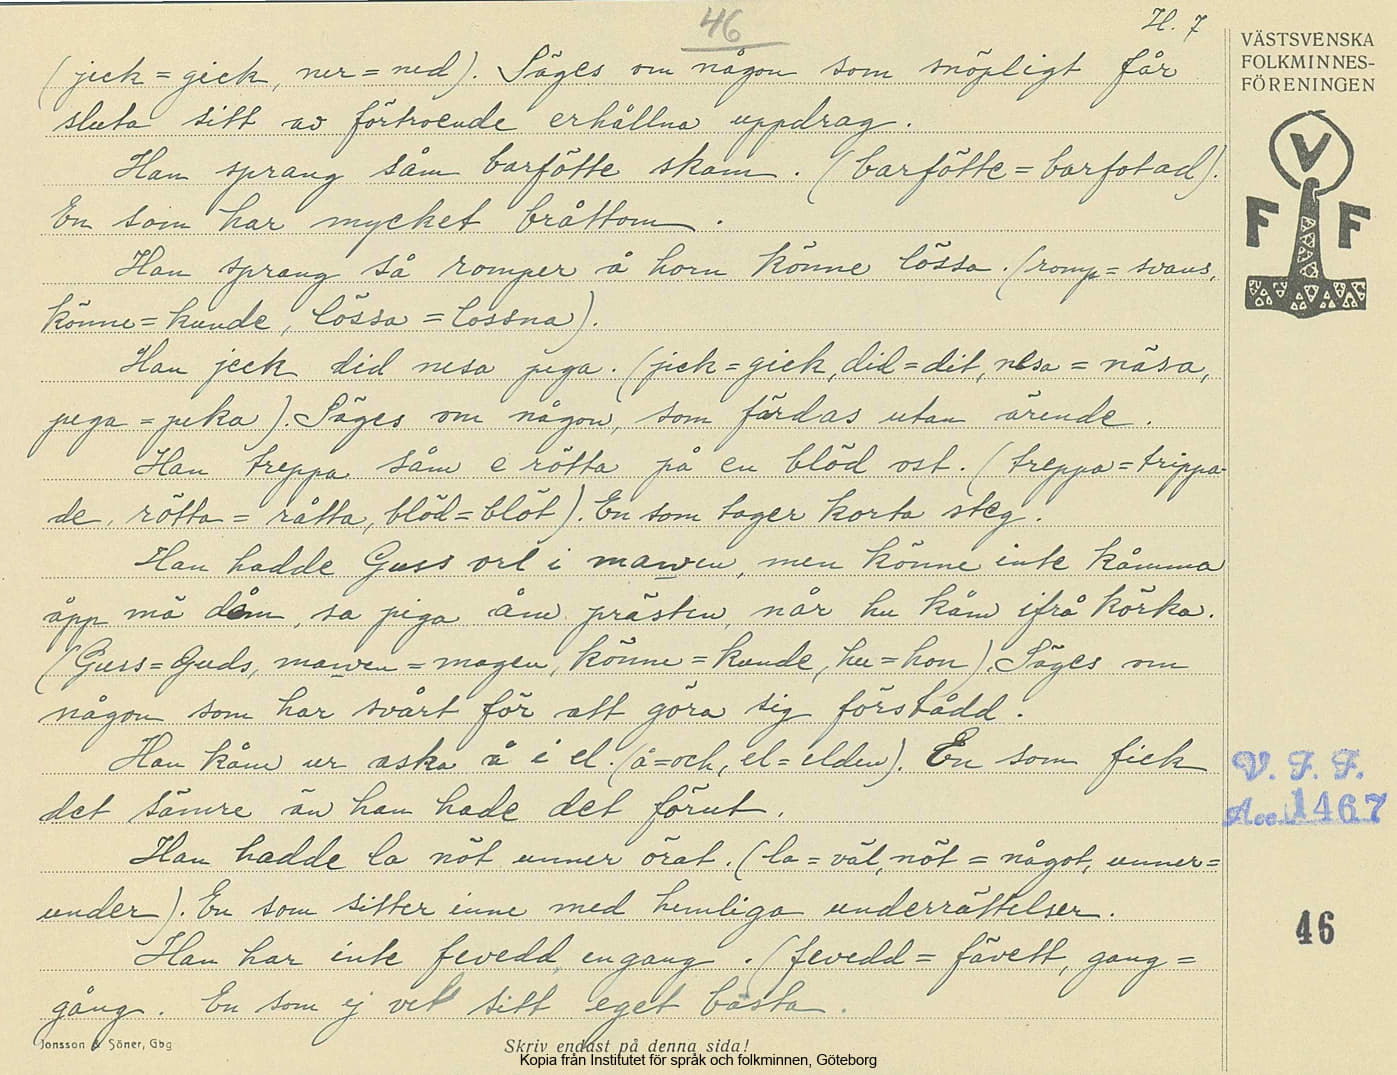 46
H. 7
(jeck = gick, ner = ned). Säges om någon som snöpligt får
sluta sitt av förtroende erhållna uppdrag.
Han sprang såm barfötte skam. (barfötte = barfotad).
En som har mycket bråttom.
Han sprang så romper å horn könne lössa. (romp = svans,
könne = kunde, lössa = lossna).
Han jeck did nesa pega. (jick = gick, did = dit, nesa = näsa,
pega = peka). Säges om någon, som färdas utan ärende.
Han treppa såm e rötta på en blöd ost. (treppa = trippa-
de, rötta = råtta, blöd = blöt). En som tager korta steg.
Han hadde Guss orl i mawen, men könne inte kåmma
åpp mä dåm, sa piga åm prästen, når hu kåm ifrå körka.
(Guss = Guds, mawen = magen, könne = kunde, hu = hon). Säges om
någon som har svårt för att göra sig förstådd.
Han kåm ur aska å i el (å = och, el = elden). En som fick
det sämre än han hade det förut.
Han hadde la nöt unner örat. (la = väl, nöt = något, unner =
under). En som sitter inne med hemliga underrättelser.
Han har inte fevedd engang. (fevedd = fävett, gang =
gång. En som ej vet sitt eget bästa.
Jonsson & Söner, Gbg
Skriv endast på denna sida!
Kopia från Institutet för språk och folkminnen, Göteborg
VÄSTSVENSKA
FOLKMINNES-
FÖRENINGEN
V
F F
V. F. F.
Acc. 1467
46